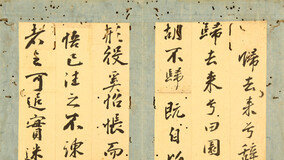 歸去来兮辭
歸去来兮田園
胡不歸既自以
形役奚惆悵而
悟已往之不諫
者之可追實迷